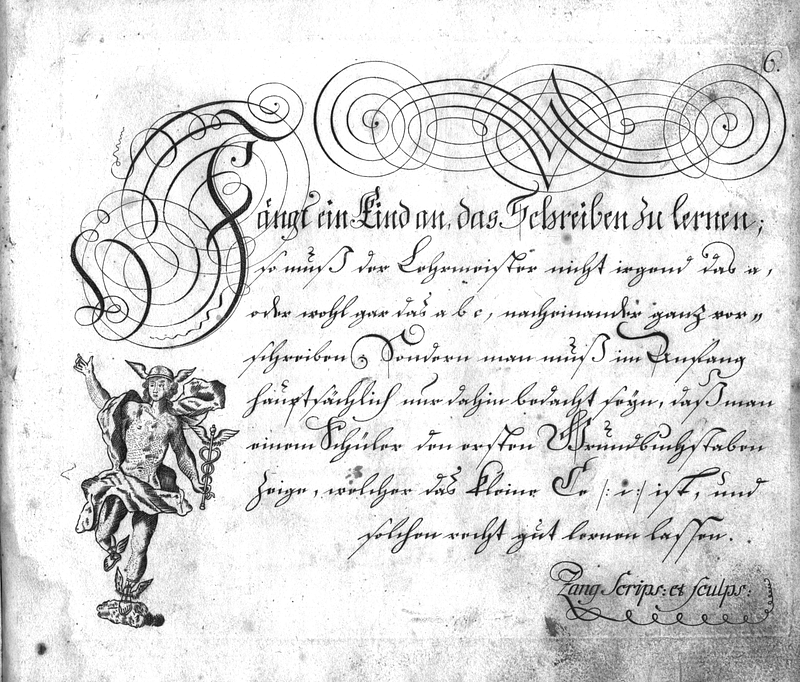 6.
Fängt ein Kind an, das Schreiben zu lernen;
so muß der Lehrmeister nicht irgend das a,
oder wohl gar das a b c, nacheinander ganz vor-
schreiben; Sondern man muß im Anfang
hauptsächlich nur dahin bedacht seyn, daß man
einem Schüler den ersten Grundbuchstaben
zeige, welcher das kleine Ce /: c :/ ist, und
solchen recht gut lernen lassen.
Zang Scrips: et sculps: